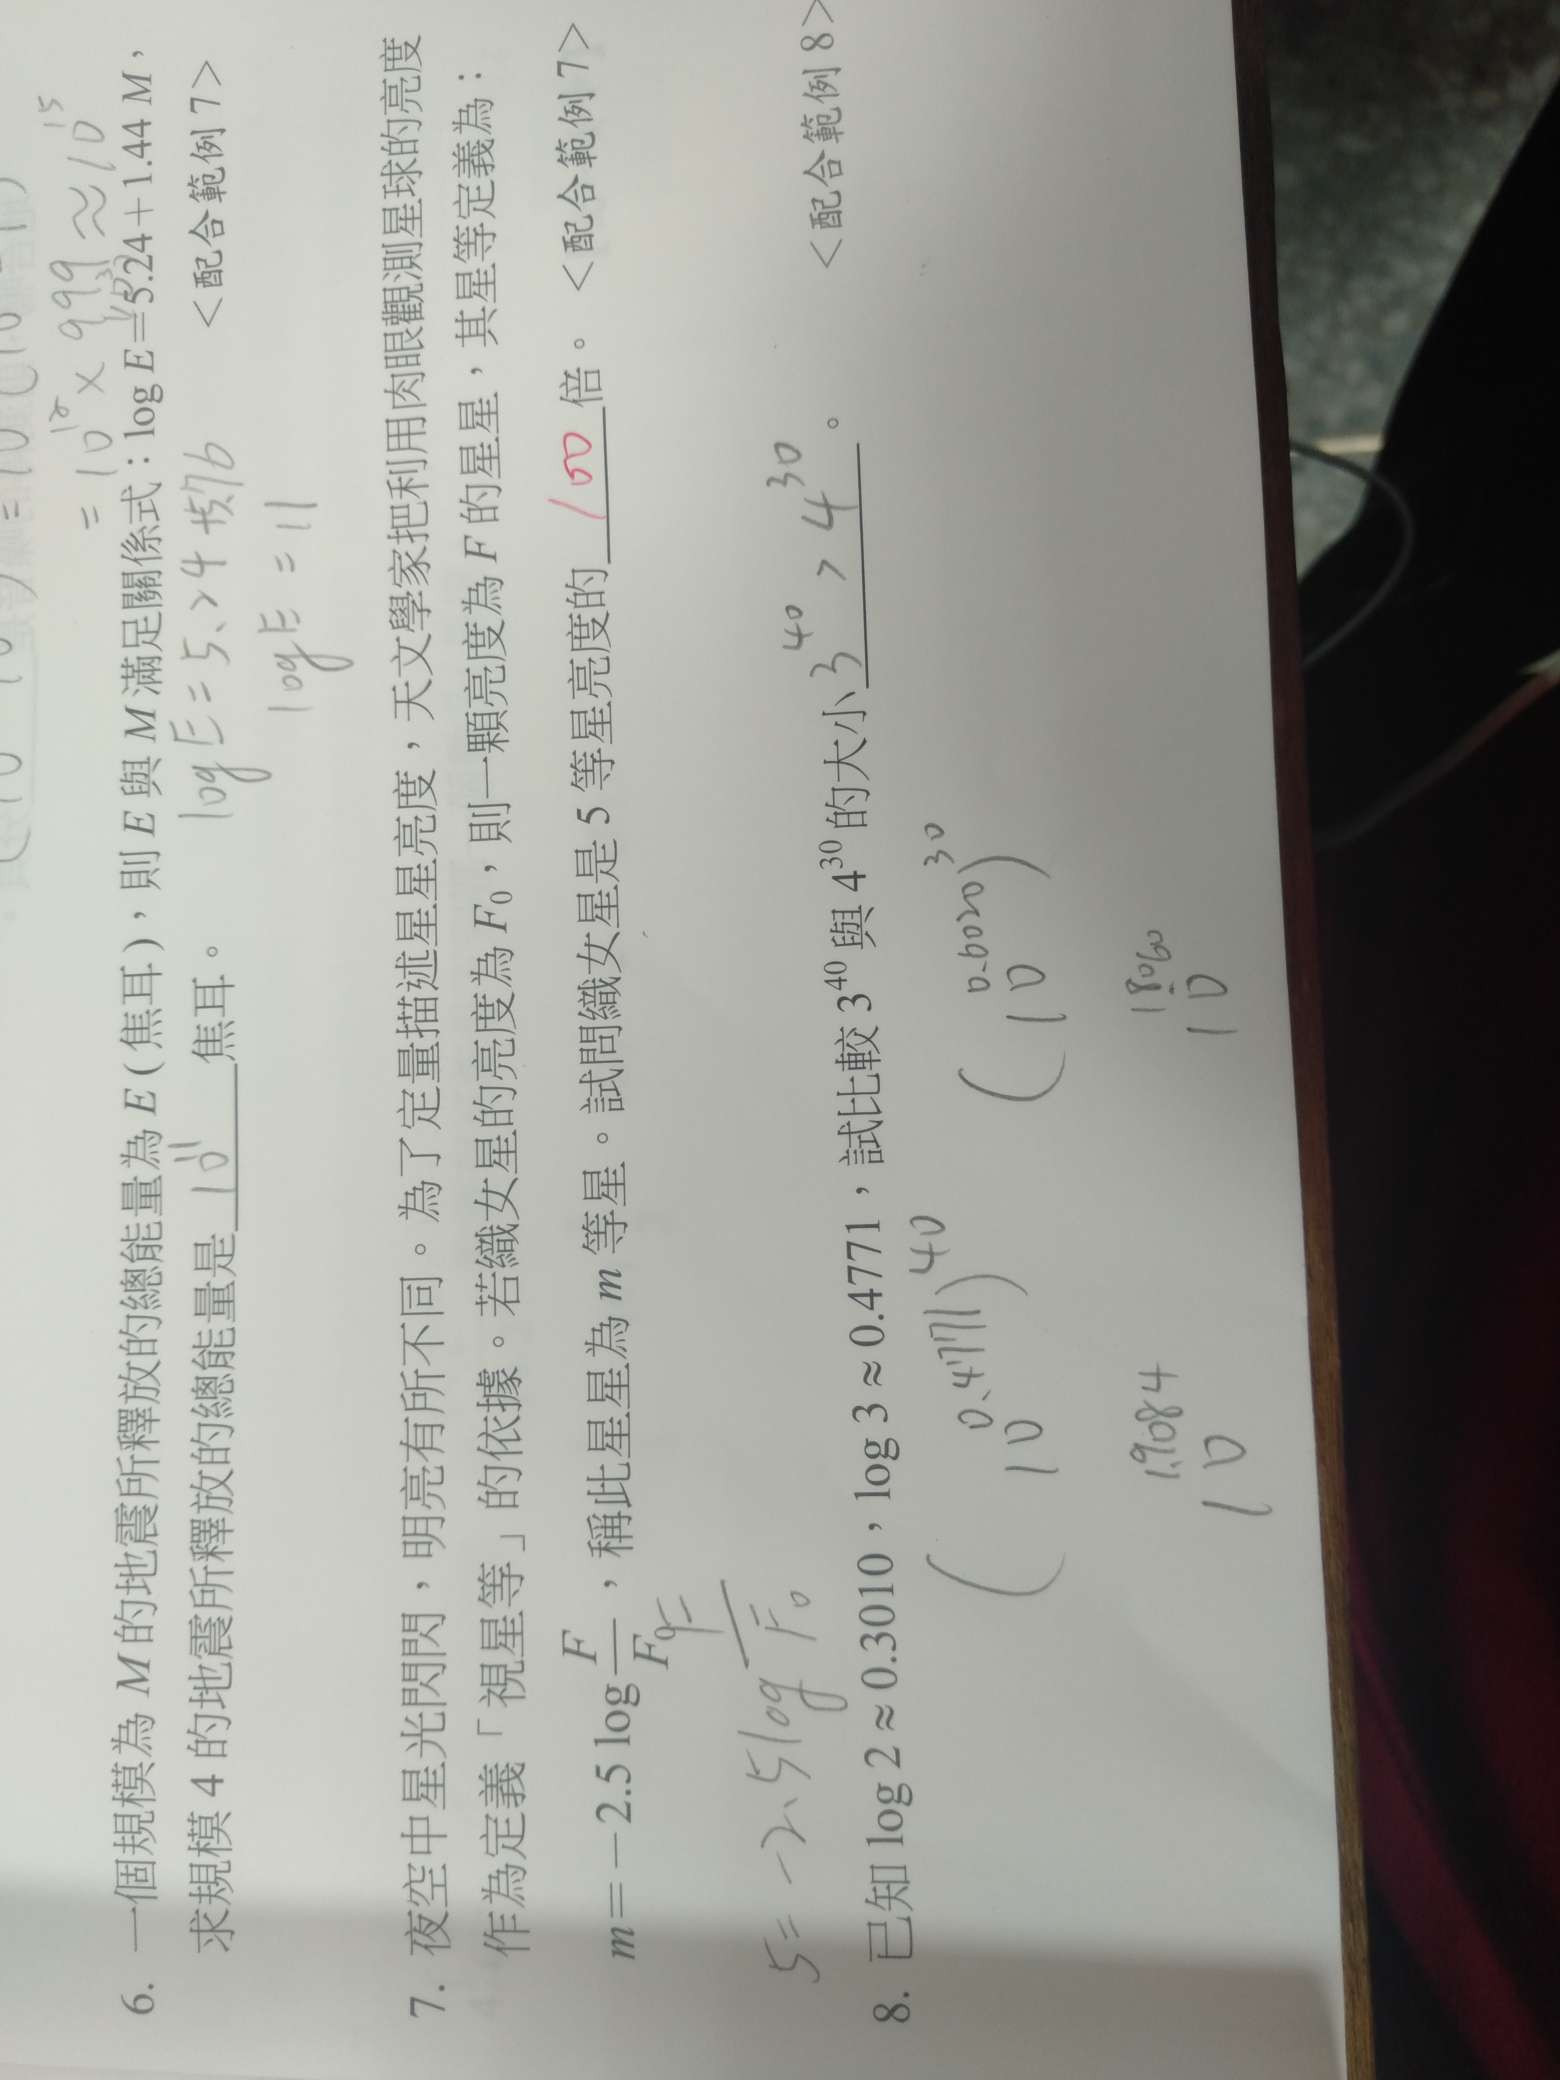 = 10¹² × 999 ≈ 10¹⁵
6. 一個規模為 M 的地震所釋放的總能量為 E (焦耳)，則 E 與 M 滿足關係式：log E＝5.24＋1.44 M，
求規模 4 的地震所釋放的總能量是 10¹¹ 焦耳。 ＜配合範例 7＞
log E = 5.24 + 5.76
log E = 11
7. 夜空中星光閃閃，明亮有所不同。為了定量描述星星亮度，天文學家把利用肉眼觀測星球的亮度
作為定義「視星等」的依據。若織女星的亮度為 F₀，則一顆亮度為 F 的星星，其星等定義為：
m＝－2.5 log F/F₀，稱此星星為 m 等星。試問織女星是 5 等星亮度的 100 倍。＜配合範例 7＞
5 = -2.5 log F/F₀
8. 已知 log 2 ≈ 0.3010，log 3 ≈ 0.4771，試比較 3⁴⁰ 與 4³⁰ 的大小 3⁴⁰ > 4³⁰。 ＜配合範例 8＞
(10^0.4771)^40 (10^0.6020)^30
10^19.084 10^18.060